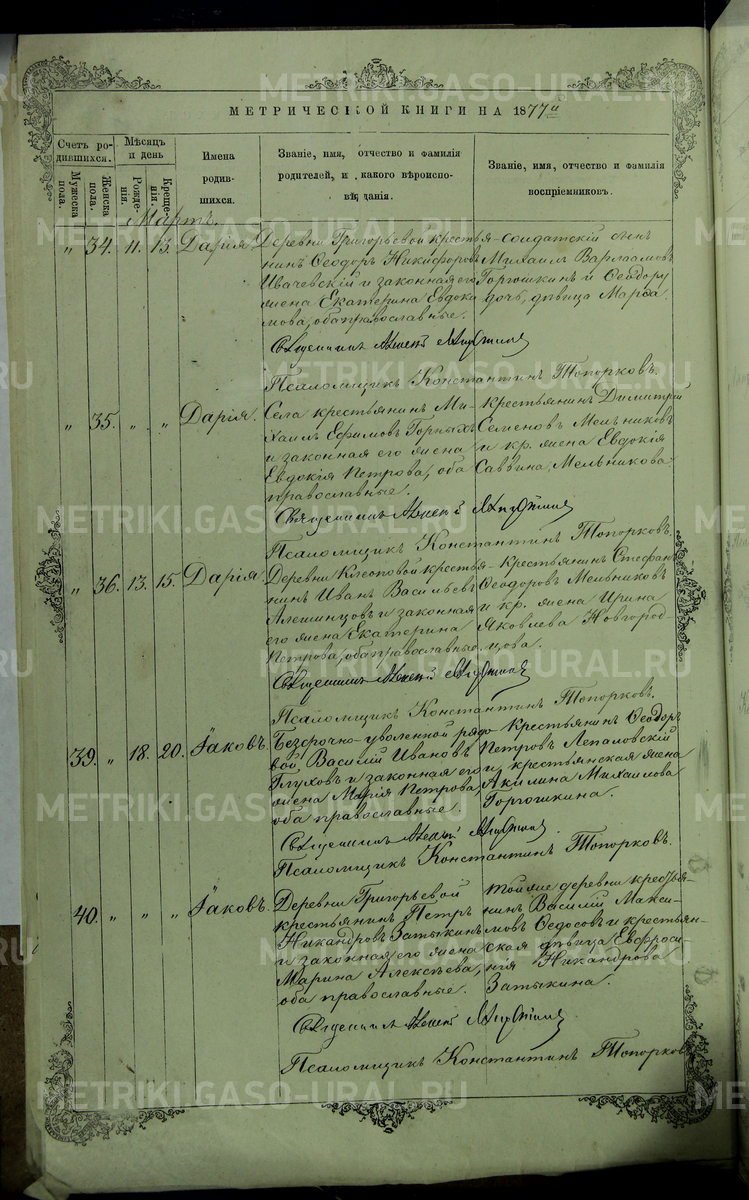 МЕТРИЧЕСКОЙ КНИГИ НА 1877 й
Счетъ ро-
дившихся.
Мужеска пола.
Женска пола.
Мѣсяцъ
и день
Рожде-
нія.
Креще-
нія.
Имена
родив-
шихся.
Званіе, имя, отчество и фамилія
родителей, и какого вѣроиспо-
вѣданія.
Званіе, имя, отчество и фамилія
воспріемниковъ.
Мартъ.
" 34. 11. 13. Дарія.
Деревни Григорьевой крестья-
нинъ Ѳеодоръ Никифоровъ
Ивачевскій и законная его
жена Екатерина Евдоки-
мова, оба православные.
солдатскій сынъ
Михаилъ Варламовъ
Горгошкинъ и Ѳеодору
дочь, дѣвица Марѳа.
Священникъ Алексѣй
Псаломщикъ Константинъ Топорковъ.
" 35. " " Дарія.
Села крестьянинъ Ми-
хаилъ Ефимовъ Горныхъ
и законная его жена
Евдокія Петрова, оба
православные.
крестьянинъ Димитрій
Семеновъ Мельниковъ
и кр. жена Евдокія
Саввина Мельникова.
Священникъ Алексѣй
Псаломщикъ Константинъ Топорковъ.
" 36. 13. 15. Дарія.
Деревни Клеоповой крестья-
нинъ Иванъ Васильевъ
Алешинцовъ и законная
его жена Екатерина
Петрова, оба православные.
Крестьянинъ Стефанъ
Ѳеодоровъ Мельниковъ
и кр. жена Ирина
Яковлева Новгород-
цова.
Священникъ Алексѣй
Псаломщикъ Константинъ Топорковъ.
39. " 18. 20. Іаковъ.
Безсрочно-уволенной рядо-
вой Василій Ивановъ
Глуховъ и законная его
жена Марія Петрова,
оба православные.
Крестьянинъ Ѳеодоръ
Петровъ Лепаловскій
и крестьянская жена
Акилина Михаилова
Горгошкина.
Священникъ Алексѣй
Псаломщикъ Константинъ Топорковъ.
40. " " " Іаковъ.
Деревни Григорьевой
крестьянинъ Петръ
Никандровъ Затыкинъ
и законная его жена
Марина Алексѣева,
оба православные.
Тойже деревни крестья-
нинъ Василій Макси-
мовъ Ѳедосовъ и крестьян-
ская дѣвица Евфроси-
нія Никандрова
Затыкина.
Священникъ Алексѣй
Псаломщикъ Константинъ Топорковъ
METRIKI.GASO-URAL.RU